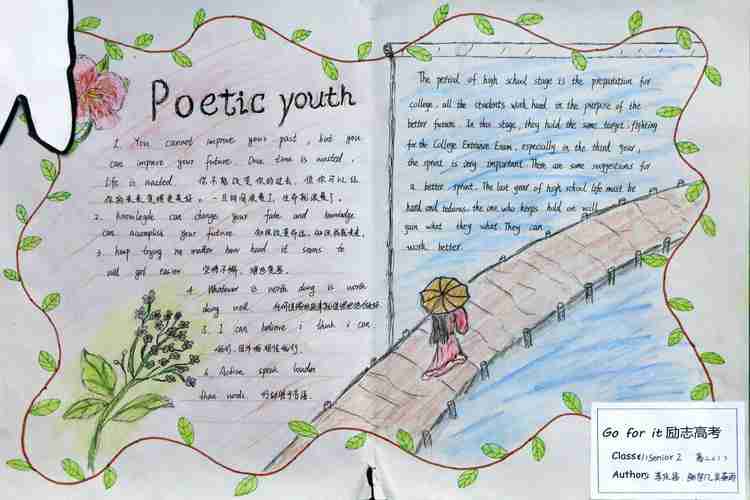 Poetic youth
1. You cannot improve your past, but you
can improve your future. Once time is wasted,
life is wasted. 你不能改变你的过去，但你可以让
你的未来变得更美好。一旦时间浪费了，生命就浪费了。
2. knowlegle can change your fate and knowledge
can acomplish your future. 知识改变命运，知识成就未来。
3. keep trying no matter how hard it seems to
will get easier.
4. Whatever is worth doing is worth
doing well.
5. I can believe i think i can
6. Action speak louder
than words. 行动胜于言语。
The period of high school stage is the preparation for
college. all the students work hard in the purpose of the
better future. In this stage, they hold the same target. fighting
for the College Entrance Exam, especially in the third year,
the sprint is very important. There are some suggestions for
a better sprint. The last year of high school life must be
hard and tedious. the one who keeps hold on will
gain what they what. They can
work better.
Go for it 励志高考
Class: Senior 2
Author: